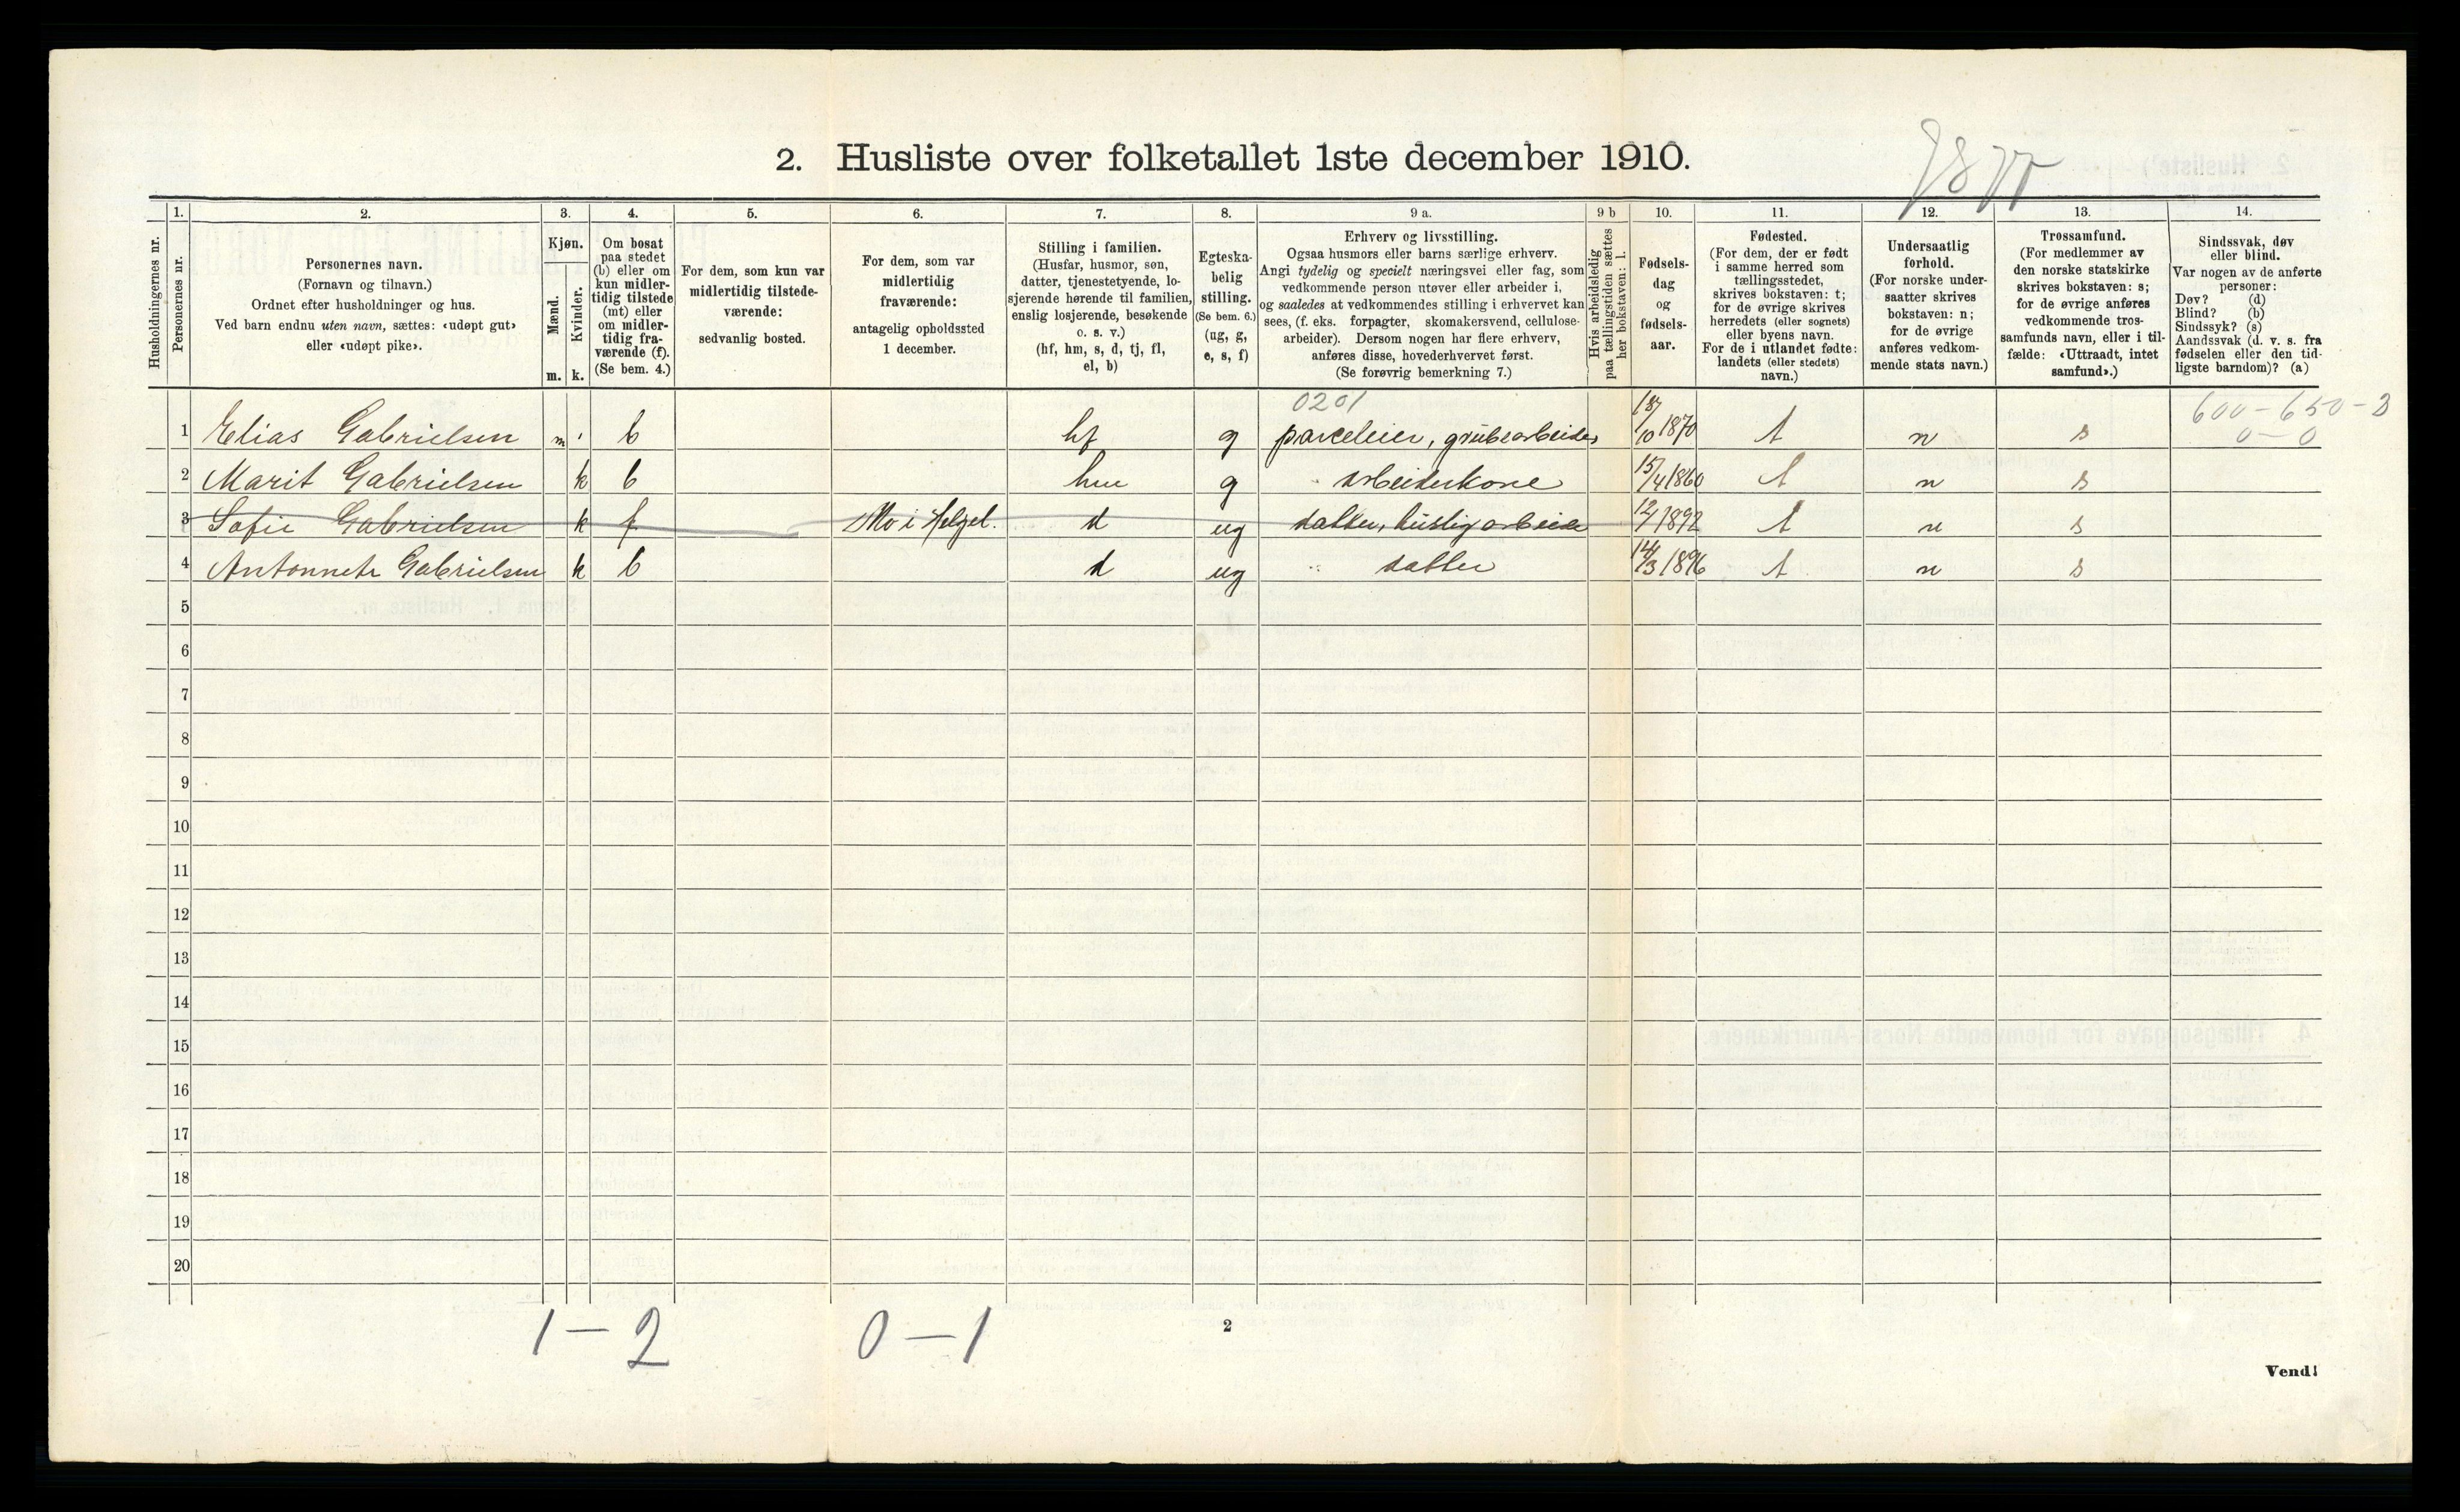 2. Husliste over folketallet 1ste december 1910.
Husholdningernes nr.
1.
Personernes nr.
2.
Personernes navn.
(Fornavn og tilnavn.)
Ordnet efter husholdninger og hus.
Ved barn endnu uten navn, sættes: «udøpt gut»
eller «udøpt pike».
3.
Kjøn.
Mænd.
Kvinder.
m. k.
4.
Om bosat
paa stedet
(b) eller om
kun midler-
tidig tilstede
(mt) eller
om midler-
tidig fra-
værende (f).
(Se bem. 4.)
5.
For dem, som kun var
midlertidig tilstede-
værende:
sedvanlig bosted.
6.
For dem, som var
midlertidig
fraværende:
antagelig opholdssted
1 december.
7.
Stilling i familien.
(Husfar, husmor, søn,
datter, tjenestetyende, lo-
sjerende hørende til familien,
enslig losjerende, besøkende
o. s. v.)
(hf, hm, s, d, tj, fl,
el, b)
8.
Egteska-
belig
stilling.
(Se bem. 6.)
(ug, g,
e, s, f)
9 a.
Erhverv og livsstilling.
Ogsaa husmors eller barns særlige erhverv.
Angi tydelig og specielt næringsvei eller fag, som
vedkommende person utøver eller arbeider i,
og saaledes at vedkommendes stilling i erhvervet kan
sees, (f. eks. forpagter, skomakersvend, cellulose-
arbeider). Dersom nogen har flere erhverv,
anføres disse, hovederhvervet først.
(Se forøvrig bemerkning 7.)
9 b
Hvis arbeidsledig
paa tællingstiden sættes
her bokstaven: l.
10.
Fødsels-
dag
og
fødsels-
aar.
11.
Fødested.
(For dem, der er født
i samme herred som
tællingsstedet,
skrives bokstaven: t;
for de øvrige skrives
herredets (eller sognets)
eller byens navn.
For de i utlandet fødte:
landets (eller stedets)
navn.)
12.
Undersaatlig
forhold.
(For norske under-
saatter skrives
bokstaven: n;
for de øvrige
anføres vedkom-
mende stats navn.)
13.
Trossamfund.
(For medlemmer av
den norske statskirke
skrives bokstaven: s;
for de øvrige anføres
vedkommende tros-
samfunds navn, eller i til-
fælde: «Uttraadt, intet
samfund».)
14.
Sindssvak, døv
eller blind.
Var nogen av de anførte
personer:
Døv? (d)
Blind? (b)
Sindssyk? (s)
Aandssvak (d. v. s. fra
fødselen eller den tid-
ligste barndom)? (a)
0201
600-650-3
0-0
1 Elias Gabrielsen m b hf g parceleier, grubearbeider 18/10 1870 t n s
2 Marit Gabrielsen k b hm g arbeiderkone 15/4 1860 t n s
3 Sofie Gabrielsen k f Mo i Helgel. d ug datter, huslig arbeide 1892 t n s
4 Antonnete Gabrielsen k b d ug datter 14/3 1896 t n s
5
6
7
8
9
10
11
12
13
14
15
16
17
18
19
20
1 - 2 0 - 1
2
Vend!